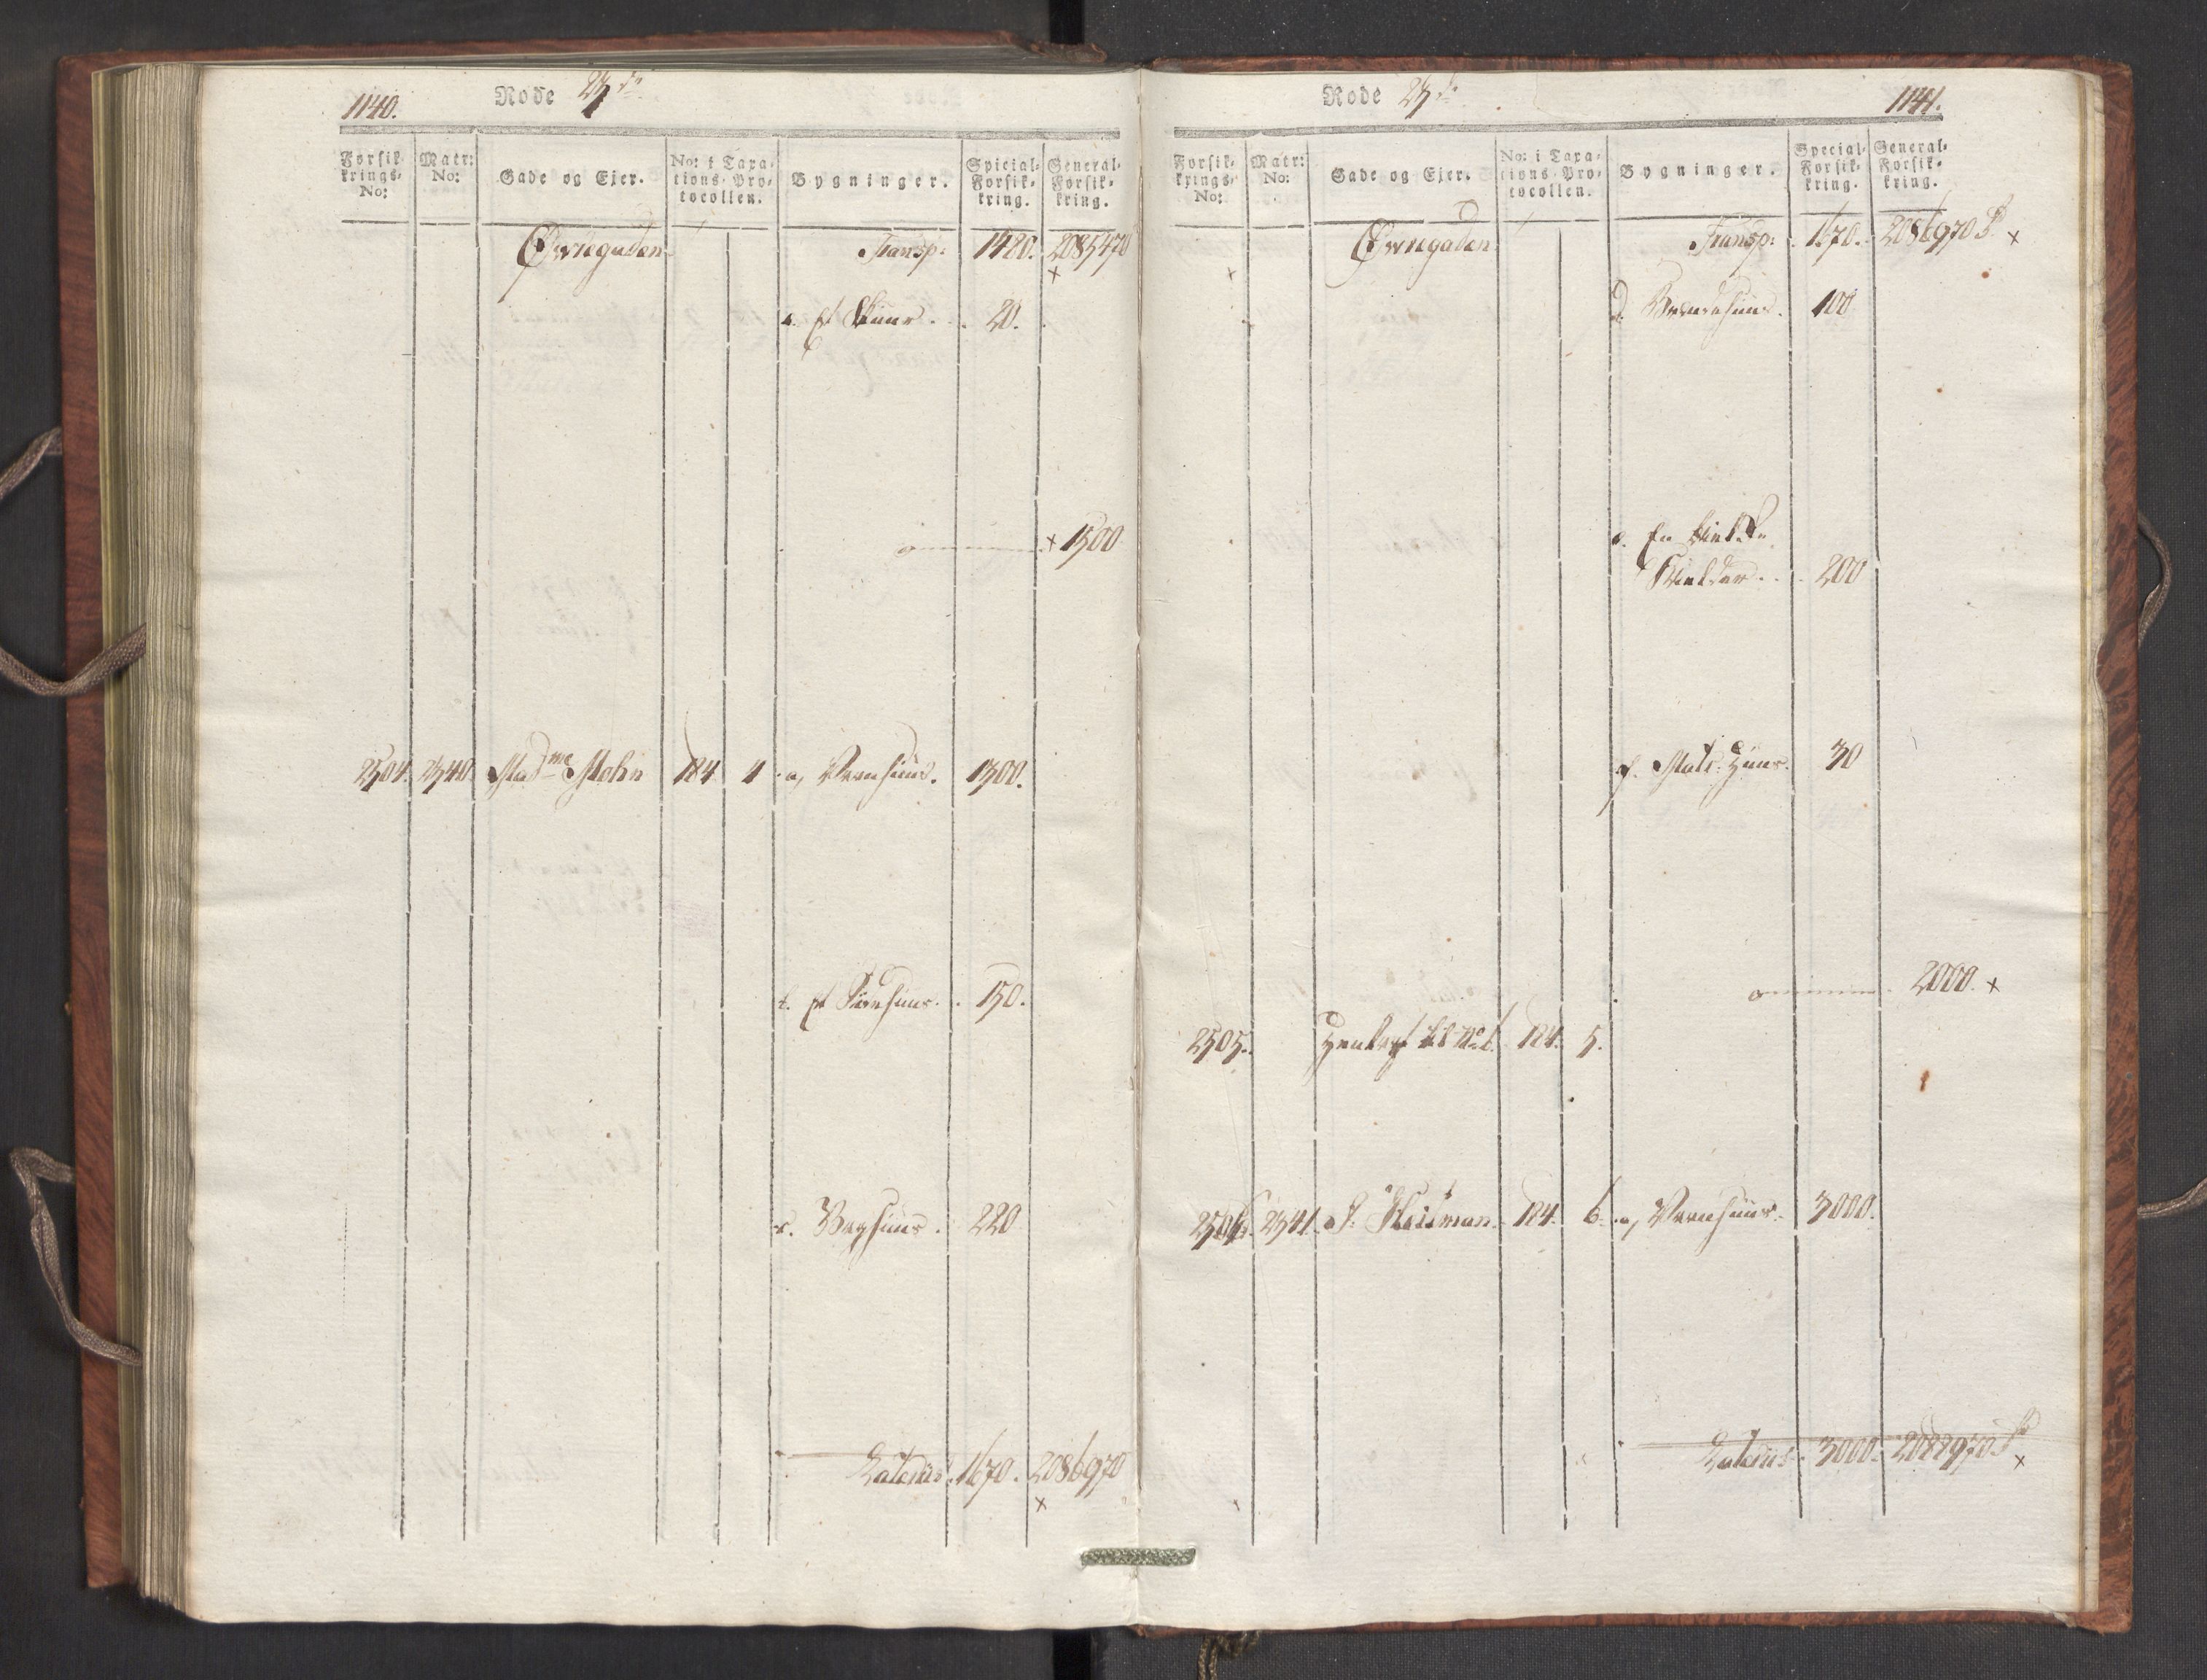 1140.
Rode 23de
Forsik-
krings-
No:
Matr:
No:
Gade og Eier.
No: i Taxa-
tions-Pro-
tocollen.
Bygninger.
Special-
Forsik-
kring.
General-
Forsik-
kring.
Øvregaden Transp: 1480. 2085470
e. et Skuur 20.
1500
2504. 2340 Madme Mohn 184 4 a, Vaanhuus. 1300.
b. et Søehuus 150.
c. Baghuus. 220
Lateris 1670. 2086970
Rode 23de
1141.
Forsik-
krings-
No:
Matr:
No:
Gade og Eier.
No: i Taxa-
tions-Pro-
tocollen.
Bygninger.
Special-
Forsik-
kring.
General-
Forsik-
kring.
Øvregaden Transp: 1670. 2086970
d. 100
e. En
Kielder 200
f. Huus 30
2000.
2505. 184. 5.
2506. 2341. 184. 6. a, Vaanhuus. 3000.
Lateris 3000. 2088970